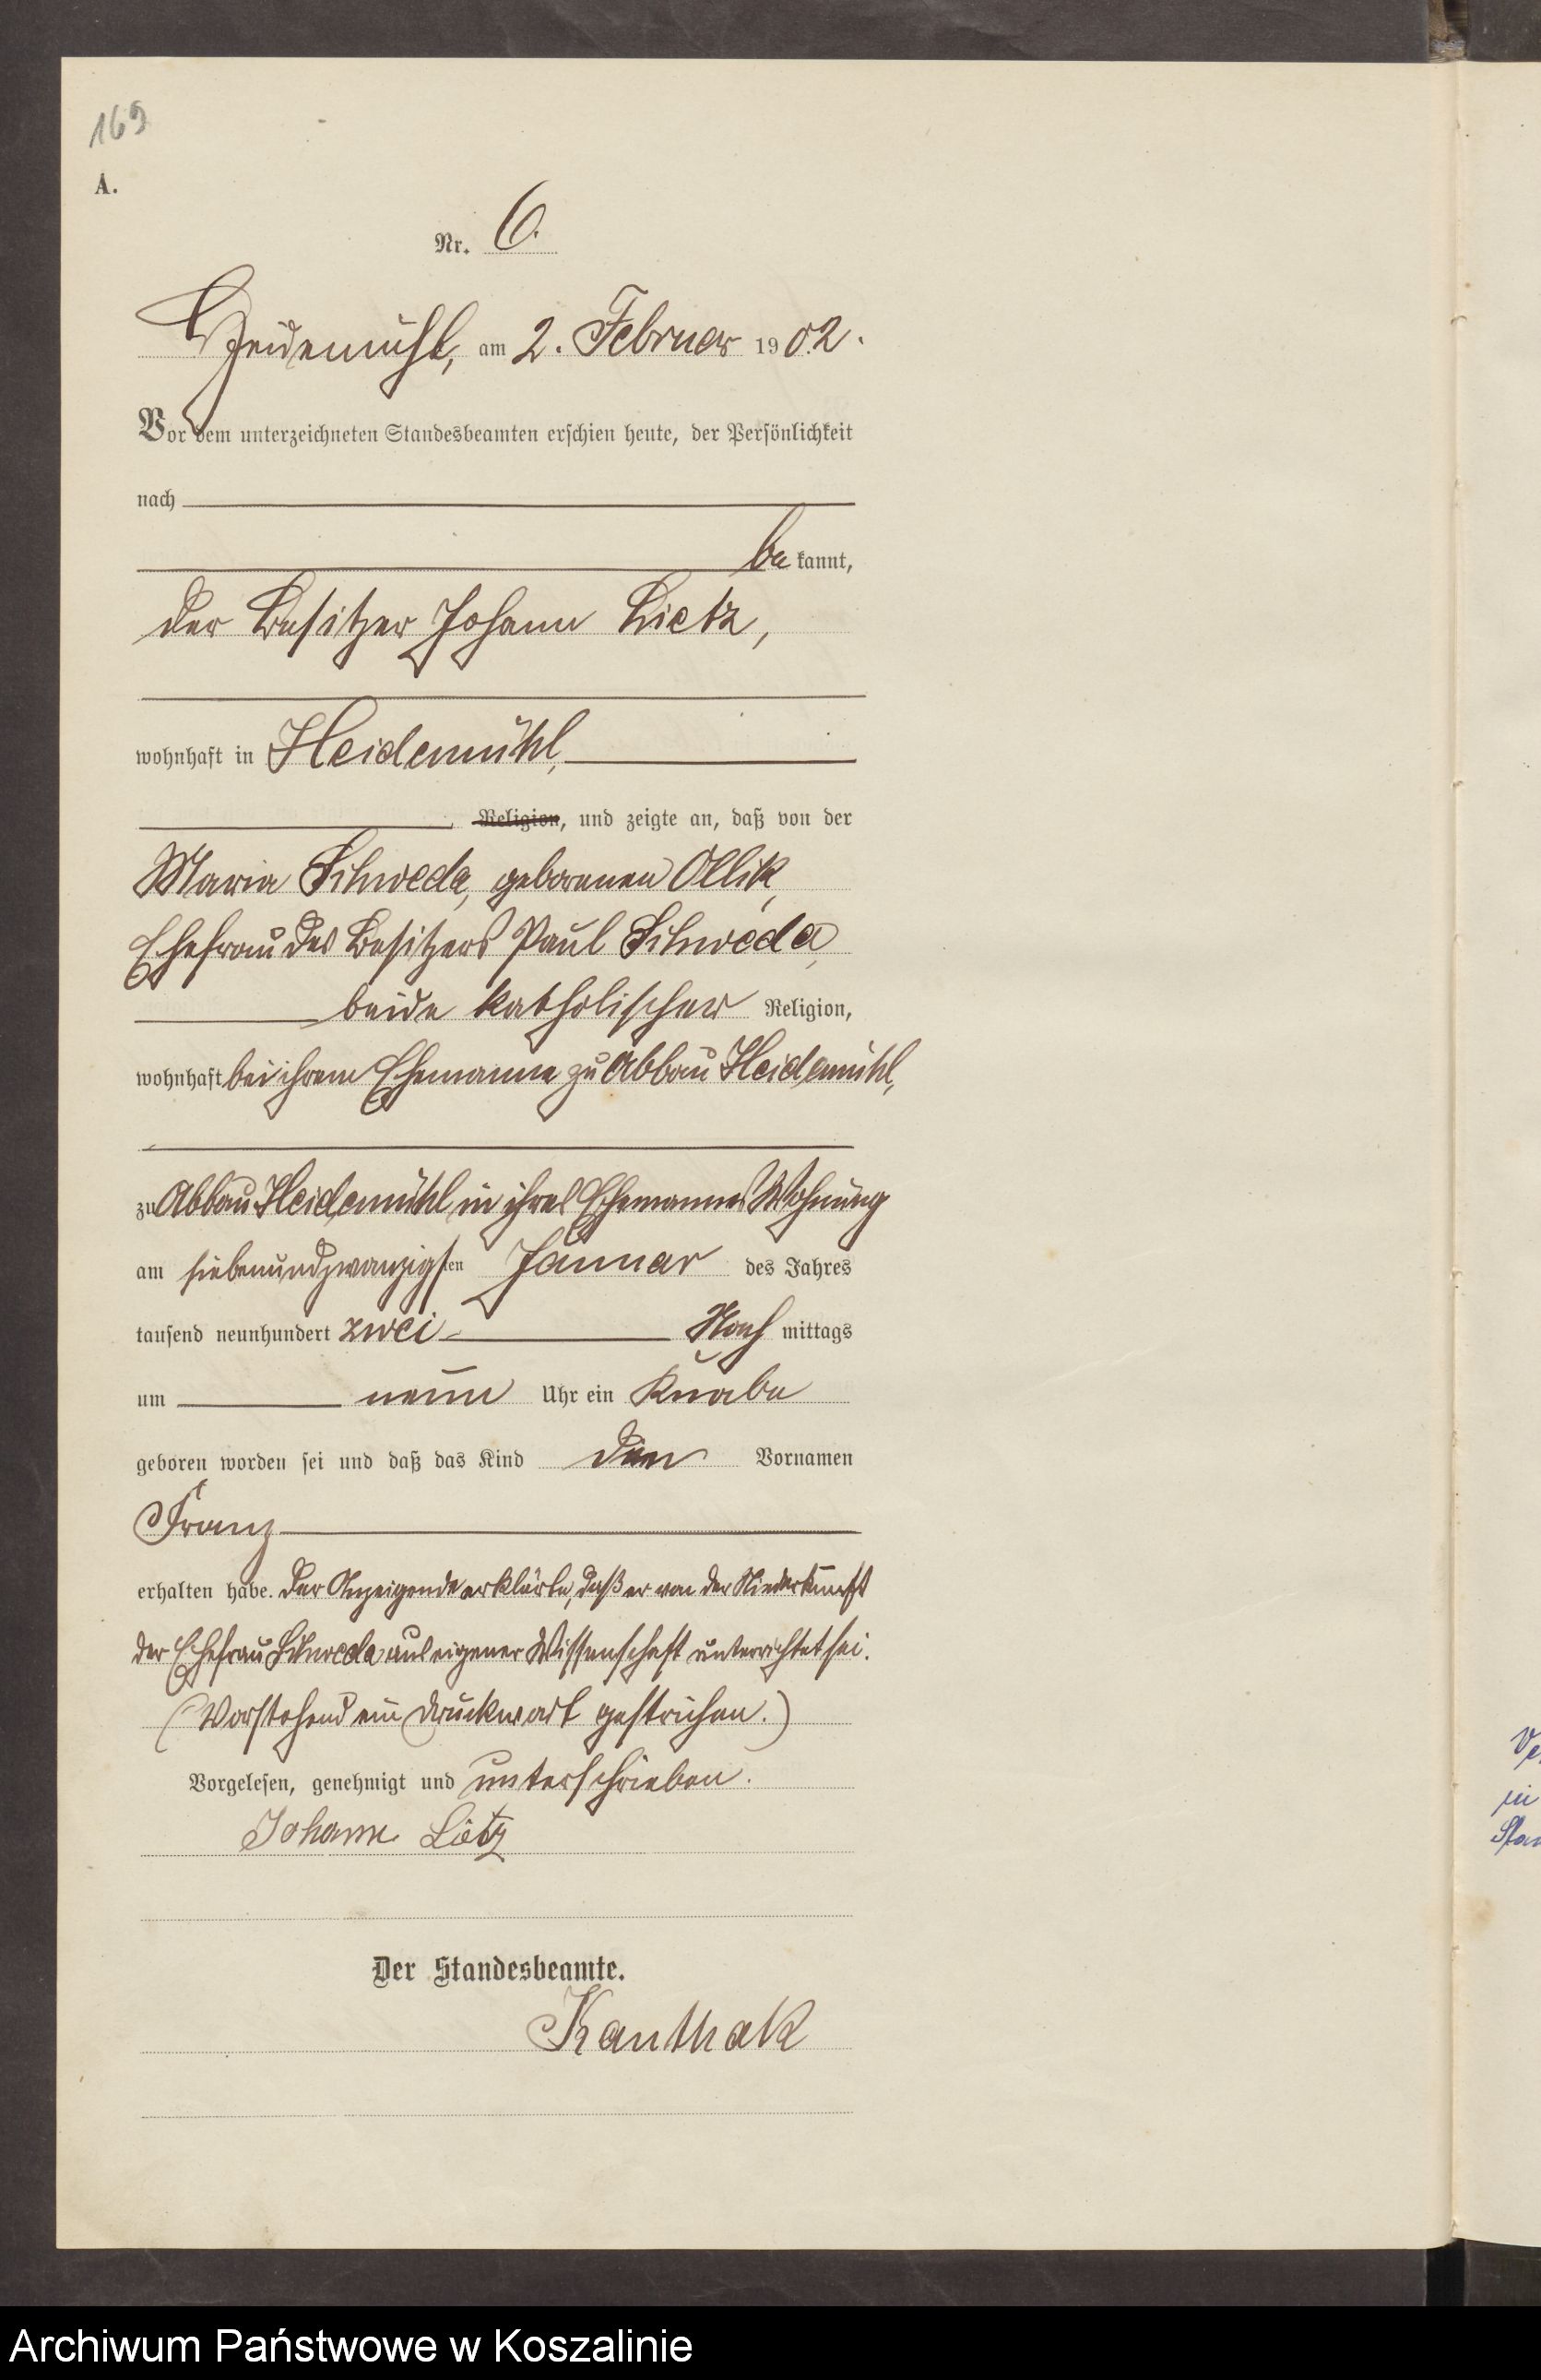 169
A.
Nr. 6.
Heidemühl, am 2. Februar 1902.
Vor dem unterzeichneten Standesbeamten erschien heute, der Persönlichkeit
nach
be kannt,
der Besitzer Johann Lietz,
wohnhaft in Heidemühl,
Religion, und zeigte an, daß von der
Maria Schweda, geborenen Ollik,
Ehefrau des Besitzers Paul Schweda,
beide katholischer Religion,
wohnhaft bei ihrem Ehemanne zu Abbau Heidemühl,
zu Abbau Heidemühl in ihres Ehemannes Wohnung
am siebenundzwanzigsten Januar des Jahres
tausend neunhundert zwei Nach mittags
um neun Uhr ein Knabe
geboren worden sei und daß das Kind den Vornamen
Franz
erhalten habe. Der Anzeigende erklärte, daß er von der Niederkunft
der Ehefrau Schweda aus eigener Wissenschaft unterrichtet sei.
(Vorstehend ein Druckwort gestrichen.)
Vorgelesen, genehmigt und unterschrieben.
Johann Lietz
Der Standesbeamte.
Kanthak
in
Archiwum Państwowe w Koszalinie